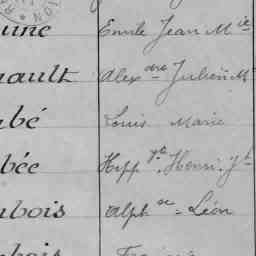 une Emile Jean M ie
nault Alex dre Julien M
bé Louis Marie
bée Hipp te Henri J h
bois Alph se - Léon
bois